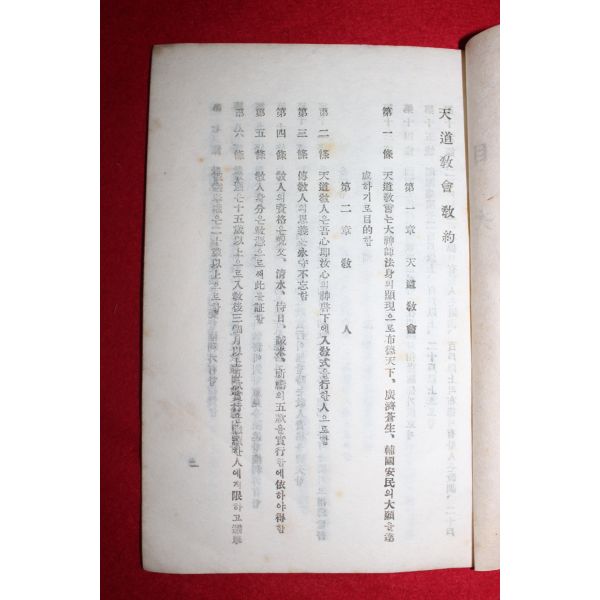 天道敎會敎約
第一章 天道敎會
第一條 天道敎會는大神師法身의顯現으로布德天下、廣濟蒼生、輔國安民의大願을達
成하기로目的함
第二章 敎人
第二條 天道敎人은吾心卽汝心의神啓下에入敎式을行한人으로함
第三條 傳敎人의恩義는永守不忘함
第四條 敎人의資格은呪文、淸水、侍日、誠米、祈禱의五款을實行함에依하야得함
第五條 敎人身分은敎憑으로써此를証함
第六條 은十五歲以上으로入敎後三個月以上 한人에게限하고